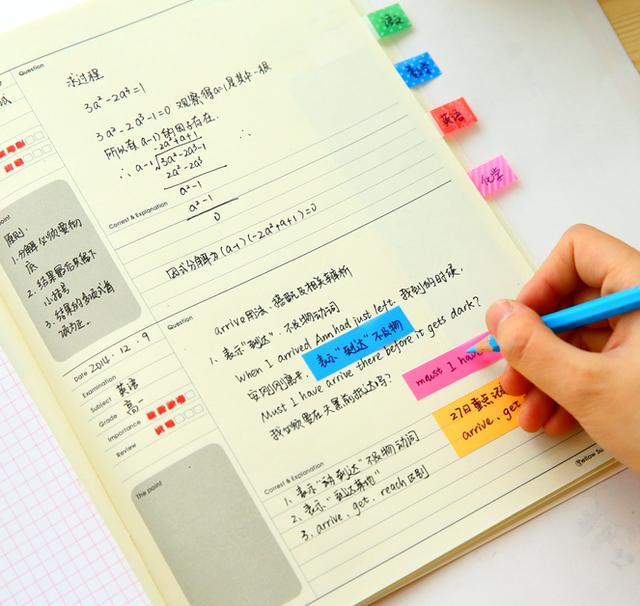 语文
数学
英语
化学
Question
求过程
3a²-2a³=1
3a²-2a³-1=0 观察得a=1是其中一根
所以有(a-1)的因子存在.
-2a²+a+1
∴ a-1 3a²-2a³-1 ∴
2a²-2a³
a²-1
a²-1
0
Correct & Explanation
因式分解为(a-1)(-2a²+a+1)=0
point
原则:
1.分解必须要彻
底
2.结果最后只留下
小括号
3.结果的多项式首
项为正.
Date 2014.12.9
Examination
Subject 英语
Grade 高一
Importance
Review
The point
Question
arrive用法、搭配及相关辨析
1. 表示"到达", 不及物动词
When I arrived Ann had just left. 我到的时候,
安刚刚离开.
表示"到达"不及物
Must I have arrive there before it gets dark?
我必须要在天黑前抵达吗?
maust I have
27日重点
arrive, get
Correct & Explanation
1. 表示"动到达"不及物动词
2. 表示"到达某地"
3. arrive, get, reach区别